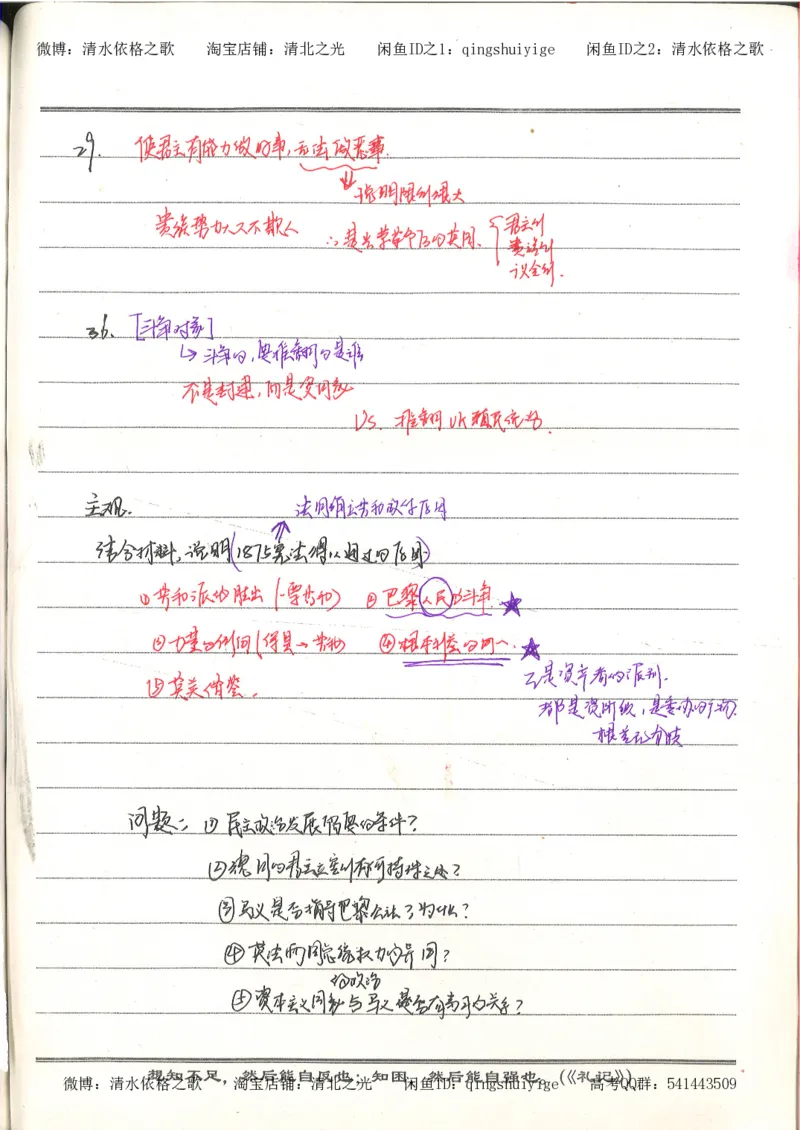 微博：清水依格之歌 淘宝店铺：清北之光 闲鱼ID之1：qingshuiyige 闲鱼ID之2：清水依格之歌
29. 使君主有能力做好事，无法做恶事.
说明限制很大
贵族势力大又不欺人 ∴是光荣革命后的英国. 君主制
贵族制
议会制.
36. [斗争对象]
↳斗争的，要推翻的是谁
不是封建，而是资国家
Vs. 推翻UK殖民统治.
主观. 法国确立共和政体原因
结合材料，说明(1875宪法得以通过的原因)
①共和派的胜出 (一票共和) ②巴黎人民的斗争.
④根本利益的同一.
⑤英美借鉴.
都是资阶级，
根基无分歧
问题: ⑴民主政治发展所需的条件?
⑵德国的君主立宪制有何特殊之处?
⑶马义是否指导巴黎公社了为什么?
⑷英法两国总统权力的异同?
的政治
⑸资本主义国家与马义是否有直接的关系?
想知不足，然后能自反也；知困，然后能自强也。(《礼记》)
微博：清水依格之歌 淘宝店铺：清北之光 闲鱼ID之1：qingshuiyige 高考QQ群：541443509